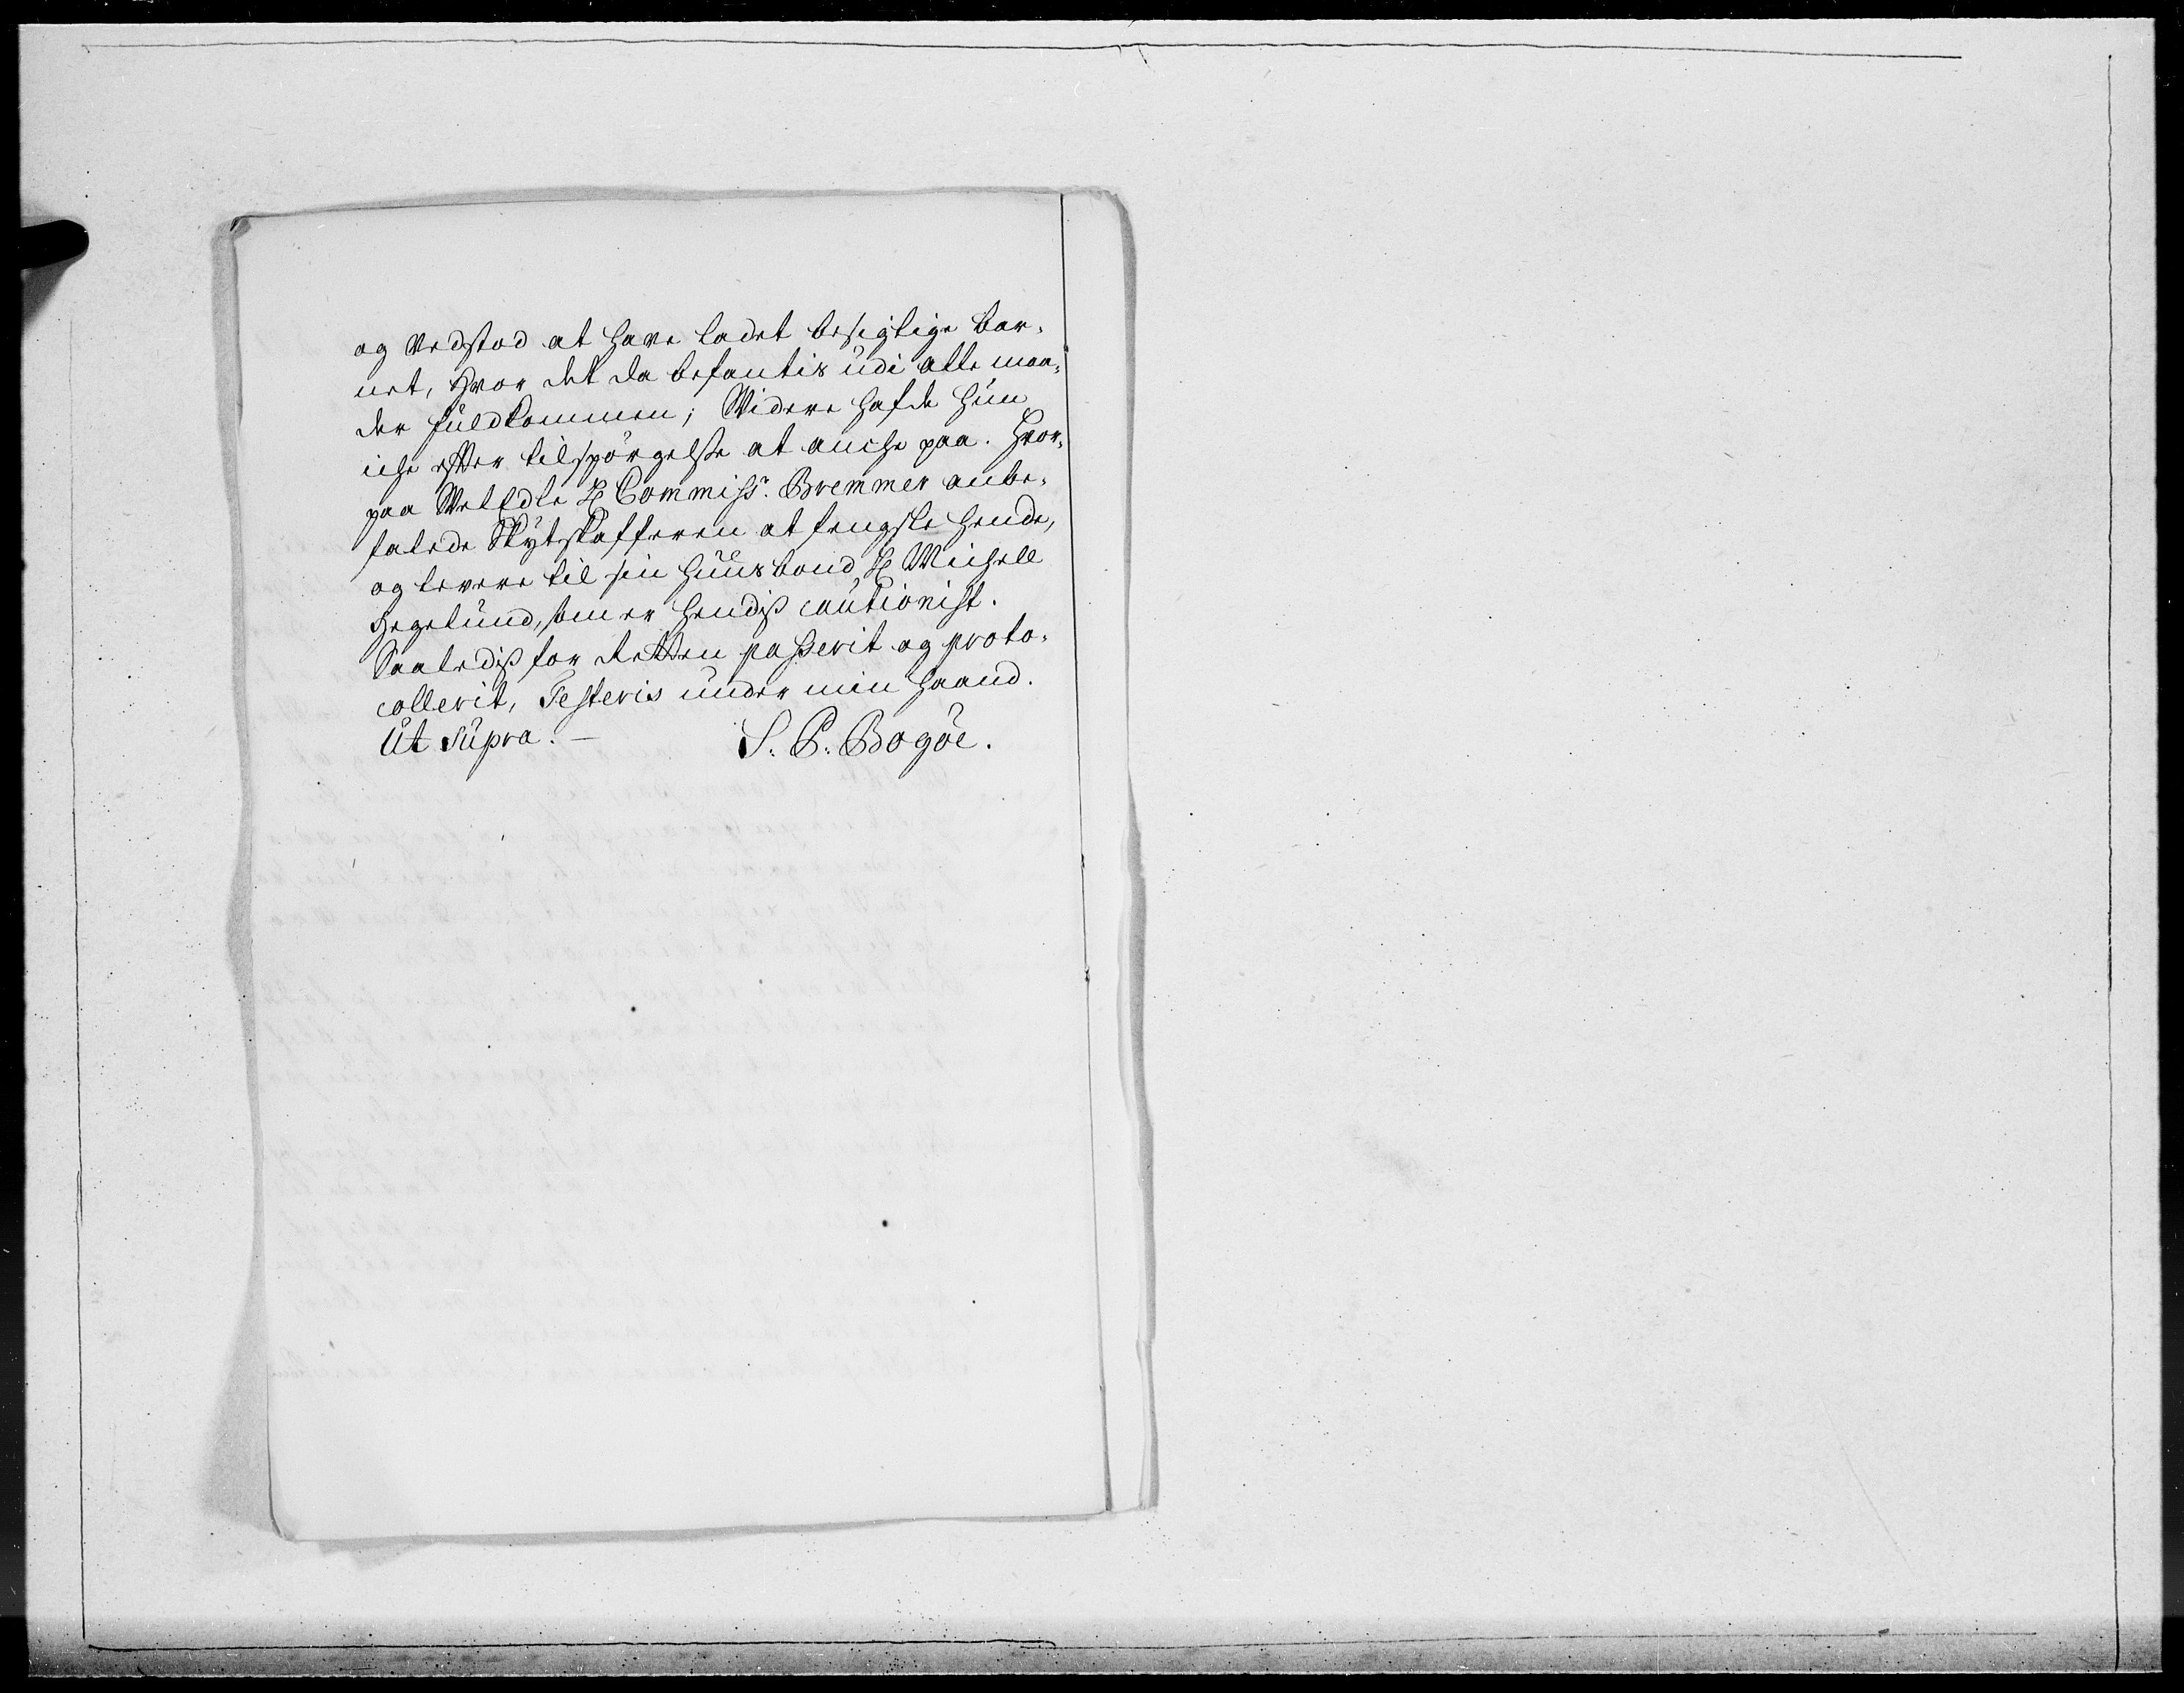 og vedstod at have ladet besigtige bar-
net, hvor det da befantis udi alle maa-
der fuldkommen; Widere hafde hun
iche efter tilspørgelse at anche paa. Hvor-
paa WelEdle Hr Commissr. Bremmer anbe-
falede Skytskafferen at fengsle hende,
og levere til sin huusbond, Hr Michell
Hegelund, som er hendis cautionist.
Saaledis for Retten passerit og proto-
collerit, Testeris under min haand.
Ut supra. — S. P. Bogøe.